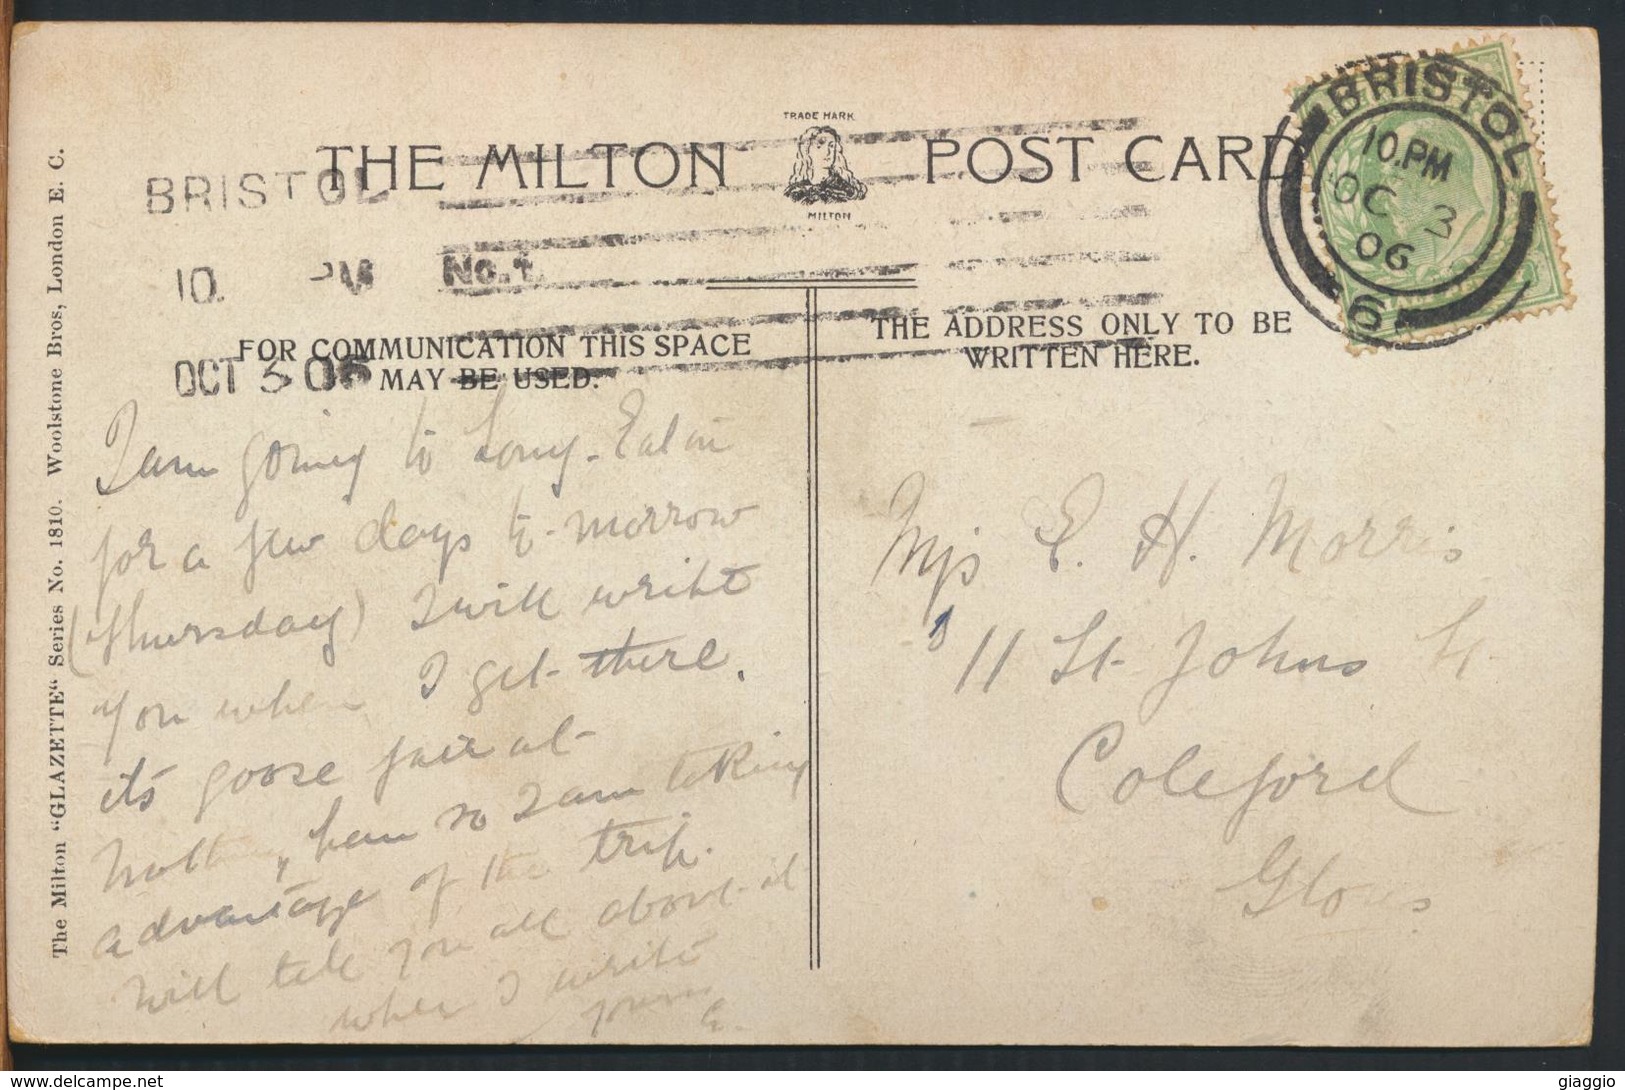 TRADE MARK
THE MILTON POST CARD
MILTON
BRISTOL
10. PM No. 1.
OCT 3 06
BRISTOL
10.PM
OC 3
06
6
FOR COMMUNICATION THIS SPACE
MAY BE USED.
THE ADDRESS ONLY TO BE
WRITTEN HERE.
The Milton "GLAZETTE" Series No. 1810. Woolstone Bros, London E. C.
I am going to Long-Eaton
for a few days to-morrow
(Thursday) I will write
you when I get there.
its goose fair at
Nottingham so I am taking
advantage of the trip.
Will tell you all about it
when I write
yours
E.
Miss E. H. Morris
11 St Johns St.
Coleford
Glous
giaggio
delcampe.net